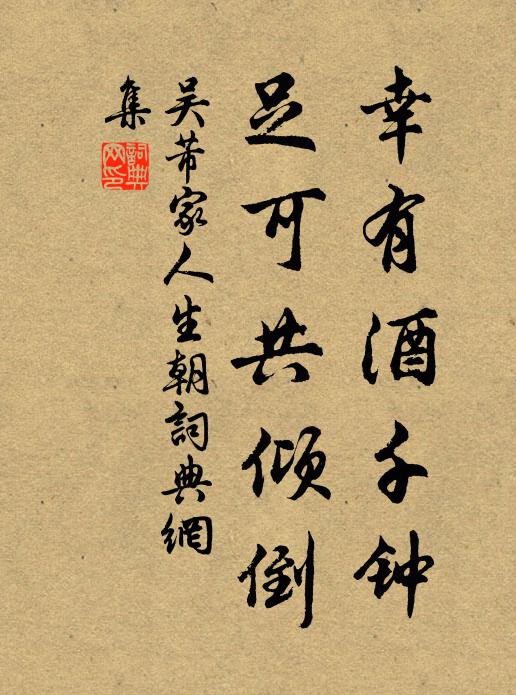 幸有酒千钟
足可共倾倒
吴芾家人生朝詞典網
集
詞典网印